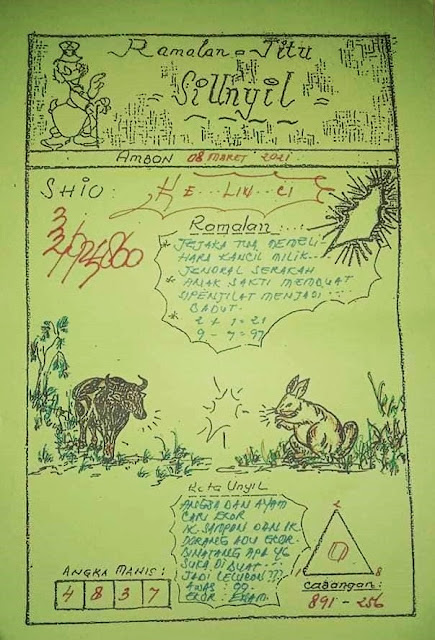 Ramalan = Jitu
SiUnyil
AMBON 08 MARET 2021
SHIO : KE...LIN...CI
Ramalan :
* JEJAKA TUA MEMELI
HARA KANCIL MILIK
JENDRAL SERAKAH
* ANAK SAKTI MEMBUAT
SIPENJILAT MENJADI
BADUT.
* 2 + 1 = 21
9 - 7 = 97
Kata Unyil
ANGSA DAN AYAM
CARI EKOR
DORANG ADU EKOR.
BINATANG APA YG
SUKA DI BUAT
JADI LELUCON ???
AWAS : 99
EKOR : ENAM.
ANGKA MANIS :
4 8 3 7
2
1
8
CABANGAN :
891 - 256